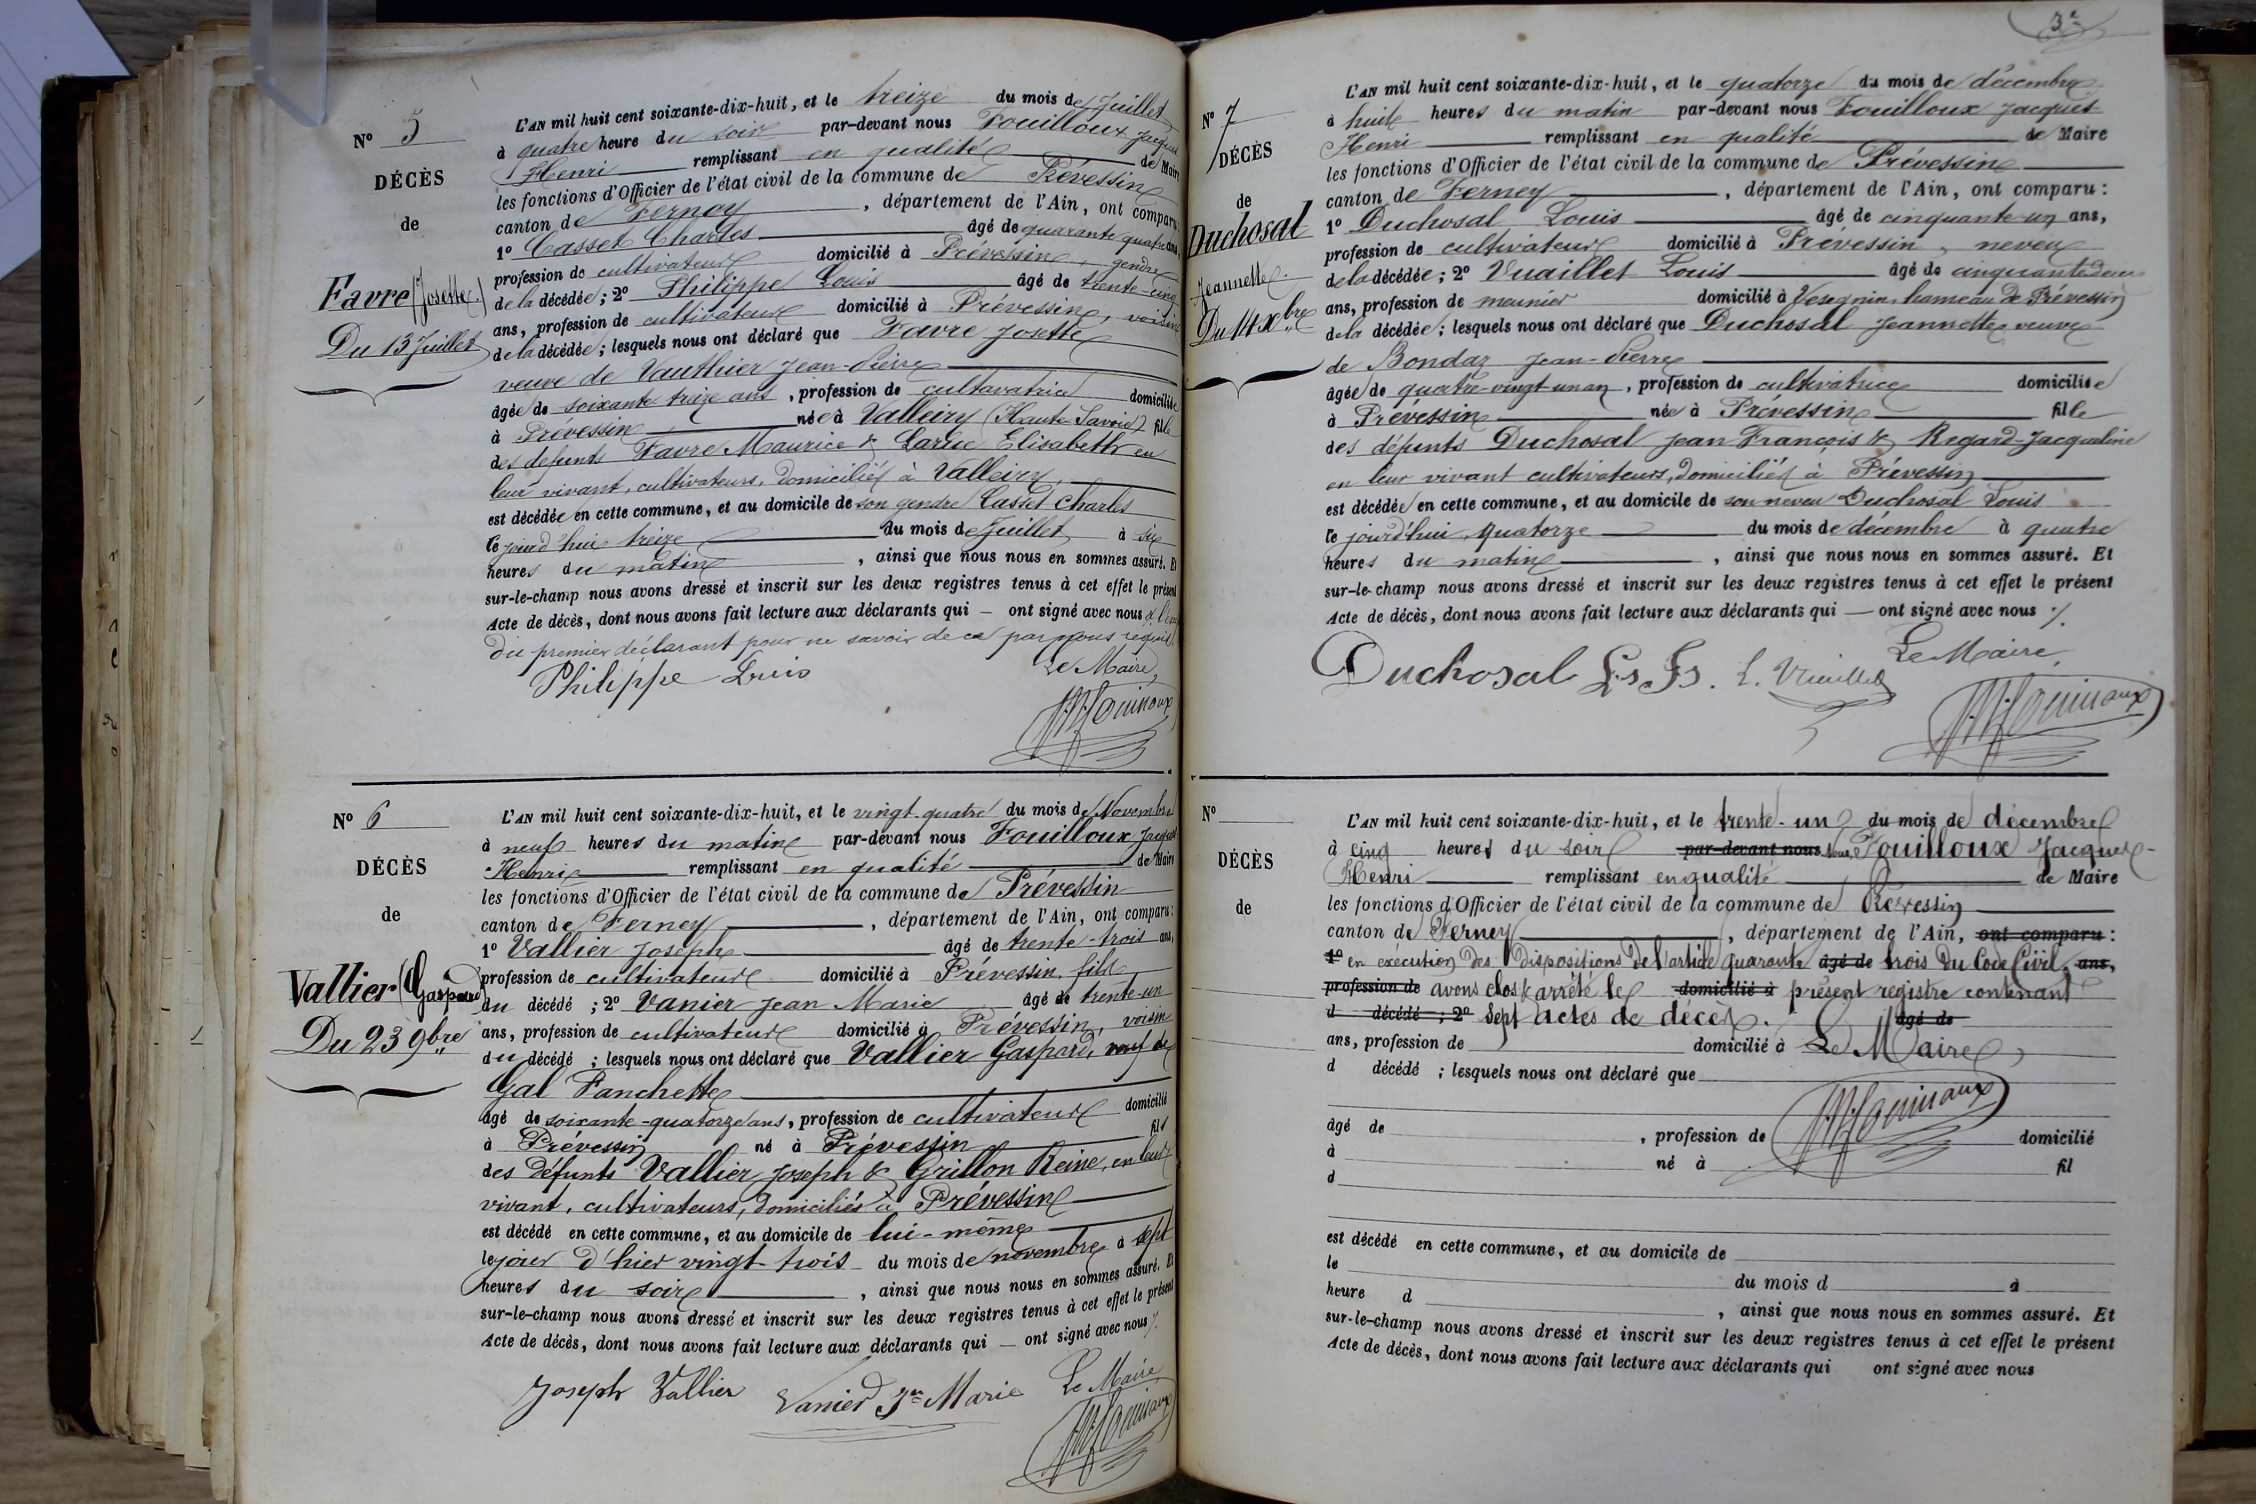 Nº 5
DÉCÈS
de
Favre (Josette)
Du 13 Juillet
L'AN mil huit cent soixante-dix-huit, et le treize du mois de Juillet
à quatre heure du soir par-devant nous Fouilloux Jacques
Henri remplissant en qualité de Maire
les fonctions d'Officier de l'état civil de la commune de Prévessin
canton de Ferney, département de l'Ain, ont comparu:
1º Casset Charles âgé de quarante quatre ans,
profession de cultivateur domicilié à Prévessin, gendre
de la décédée; 2º Philippe Louis âgé de trente-cinq
ans, profession de cultivateur domicilié à Prévessin, voisin
de la décédée; lesquels nous ont déclaré que Favre Josette
veuve de Vauthier Jean-Pierre
âgée de soixante treize ans, profession de cultavatrice domiciliée
à Prévessin née à Valleiry (Haute Savoie) fille
des defunts Favre Maurice & Larue Elisabeth en
leur vivant, cultivateurs, domiciliés à Valleiry,
est décédée en cette commune, et au domicile de son gendre Casset Charles
le jourd'hui treize du mois de Juillet à six
heures du matin, ainsi que nous nous en sommes assuré. Et
sur-le-champ nous avons dressé et inscrit sur les deux registres tenus à cet effet le présent
Acte de décès, dont nous avons fait lecture aux déclarants qui — ont signé avec nous
du premier déclarant pour ne savoir de ce par nous requis.
Philippe Louis Le Maire,
Nº 6
DÉCÈS
de
Vallier (Gaspard)
Du 23 9bre
L'AN mil huit cent soixante-dix-huit, et le vingt-quatre du mois de Novembre
à neuf heures du matin par-devant nous Fouilloux Jacques
Henri remplissant en qualité de Maire
les fonctions d'Officier de l'état civil de la commune de Prévessin
canton de Ferney, département de l'Ain, ont comparu:
1º Vallier Joseph âgé de trente-trois ans,
profession de cultivateur domicilié à Prévessin, fils
du décédé; 2º Vanier Jean Marie âgé de trente-un
ans, profession de cultivateur domicilié à Prévessin, voisin
du décédé; lesquels nous ont déclaré que Vallier Gaspard, veuf de
Gal Fanchette
âgé de soixante-quatorze ans, profession de cultivateur domicilié
à Prévessin né à Prévessin fils
des Défunts Vallier Joseph & Grillon Reine, en leur
vivant, cultivateurs, domiciliés à Prévessin
est décédé en cette commune, et au domicile de lui-même
le jour d'hier vingt-trois du mois de novembre à sept
heures du soir, ainsi que nous nous en sommes assuré. Et
sur-le-champ nous avons dressé et inscrit sur les deux registres tenus à cet effet le présent
Acte de décès, dont nous avons fait lecture aux déclarants qui — ont signé avec nous /.
Joseph Vallier Vanier Jn Marie Le Maire,
3e
Nº 7
DÉCÈS
de
Duchosal
Jeannette.
Du 14 Xbre
L'AN mil huit cent soixante-dix-huit, et le quatorze du mois de décembre
à huit heures du matin par-devant nous Fouilloux Jacques
Henri remplissant en qualité de Maire
les fonctions d'Officier de l'état civil de la commune de Prévessin
canton de Ferney, département de l'Ain, ont comparu:
1º Duchosal Louis âgé de cinquante-un ans,
profession de cultivateur domicilié à Prévessin, neveu
de la décédée; 2º Vuaillet Louis âgé de cinquante deux
ans, profession de meunier domicilié à Vesegnin, hameau de Prévessin
de la décédée; lesquels nous ont déclaré que Duchosal Jeannette veuve
de Bondaz Jean-Pierre
âgée de quatre-vingt un an, profession de cultivatrice domiciliée
à Prévessin née à Prévessin fille
des défunts Duchosal Jean François & Regard Jacqueline
en leur vivant cultivateurs, domiciliés à Prévessin
est décédée en cette commune, et au domicile de son neveu Duchosal Louis
le jourd'hui quatorze du mois de décembre à quatre
heures du matin, ainsi que nous nous en sommes assuré. Et
sur-le-champ nous avons dressé et inscrit sur les deux registres tenus à cet effet le présent
Acte de décès, dont nous avons fait lecture aux déclarants qui — ont signé avec nous /.
Duchosal Ls Fs. L. Vuaillet Le Maire,
Nº
DÉCÈS
de
L'AN mil huit cent soixante-dix-huit, et le trente-un du mois de décembre
à cinq heures du soir par-devant nous nous, Fouilloux Jacques
Henri remplissant en qualité de Maire
les fonctions d'Officier de l'état civil de la commune de Prévessin
canton de Ferney, département de l'Ain, ont comparu:
1º en exécution des dispositions de l'article quarante âgé de trois du Code Civil, ans,
profession de avons clos & arrêté le domicilié à présent registre contenant
d décédé; 2º sept actes de décès. âgé de
ans, profession de domicilié à Le Maire,
d décédé; lesquels nous ont déclaré que
âgé de, profession de domicilié
à né à fil
d
est décédé en cette commune, et au domicile de
le du mois d à
heure d, ainsi que nous nous en sommes assuré. Et
sur-le-champ nous avons dressé et inscrit sur les deux registres tenus à cet effet le présent
Acte de décès, dont nous avons fait lecture aux déclarants qui ont signé avec nous